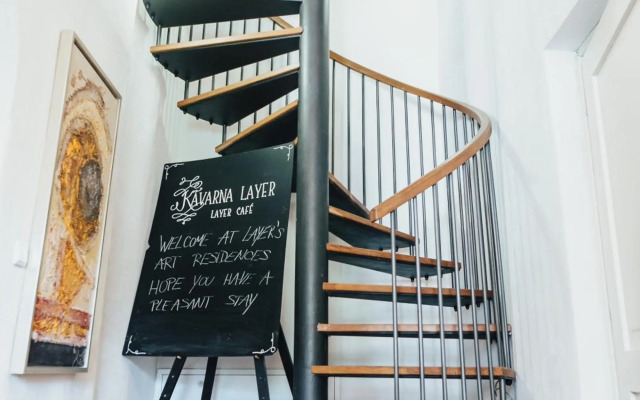 KAVARNA LAYER
LAYER CAFÉ
WELCOME AT LAYER'S
ART RESIDENCES
HOPE YOU HAVE A
PLEASANT STAY